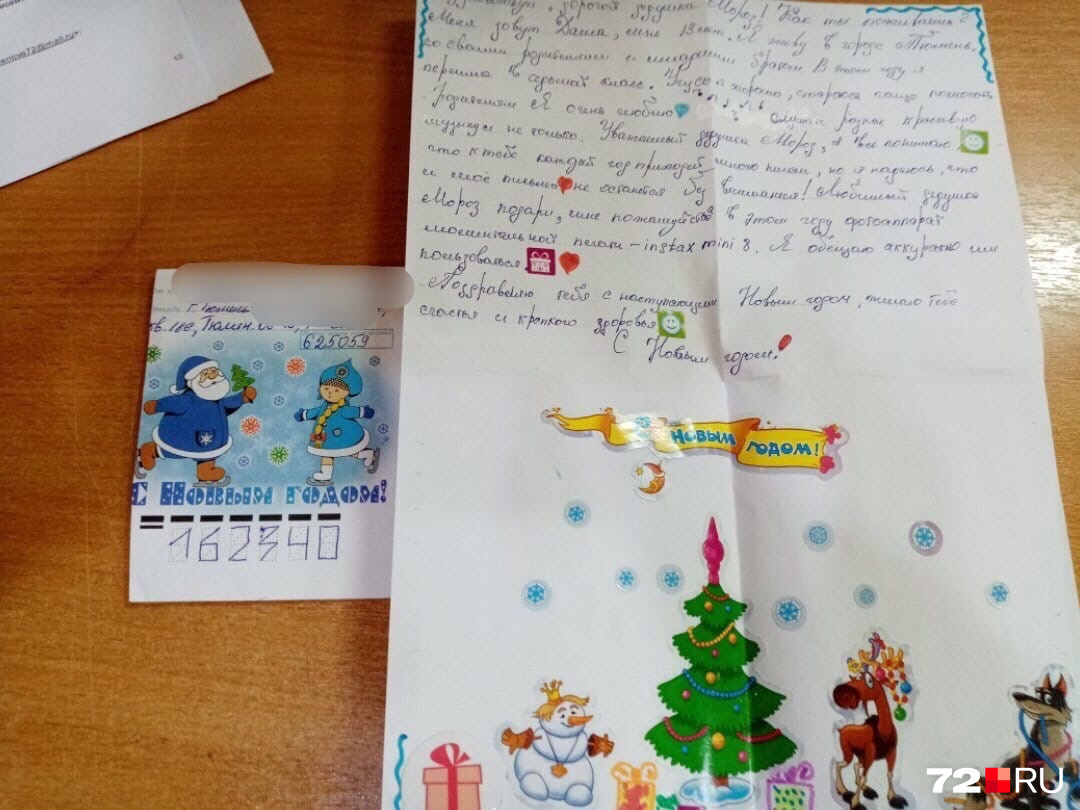 enova72@mail.ru>
Здравствуй, дорогой дедушка Мороз! Как ты поживаешь?
Меня зовут Даша, мне 13 лет. Я живу в городе Тюмень,
со своими родителями и младшим братом. В этом году я
перешла в седьмой класс. Учусь я хорошо, стараюсь чаще помогать
родителям. Я очень люблю слушать разные красивую
музыку и не только. Уважаемый дедушка Мороз, я все понимаю,
что к тебе каждый год приходит много писем, но я надеюсь, что
и моё письмо не останется без внимания! Любимый дедушка
Мороз подари, мне пожалуйста в этом году фотоаппарат
моментальной печати - instax mini 8. Я обещаю аккуратно им
пользоваться.
Поздравляю тебя с наступающим Новым годом, желаю тебе
счастья и крепкого здоровья
С Новым годом!
г. Тюмень
625059
С Новым годом!
162340
НОВЫМ ГОДОМ!
72 RU